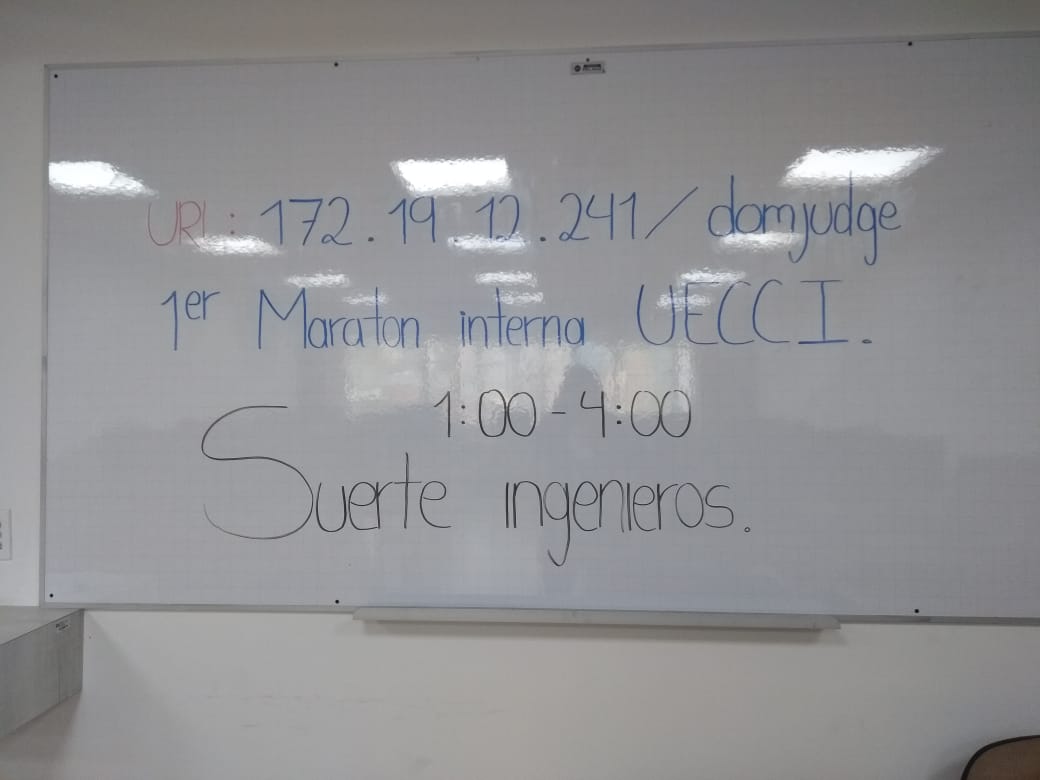 URL: 172.19.12.241/domjudge
1er Maraton interna UECCI.
1:00-4:00
Suerte ingenieros.